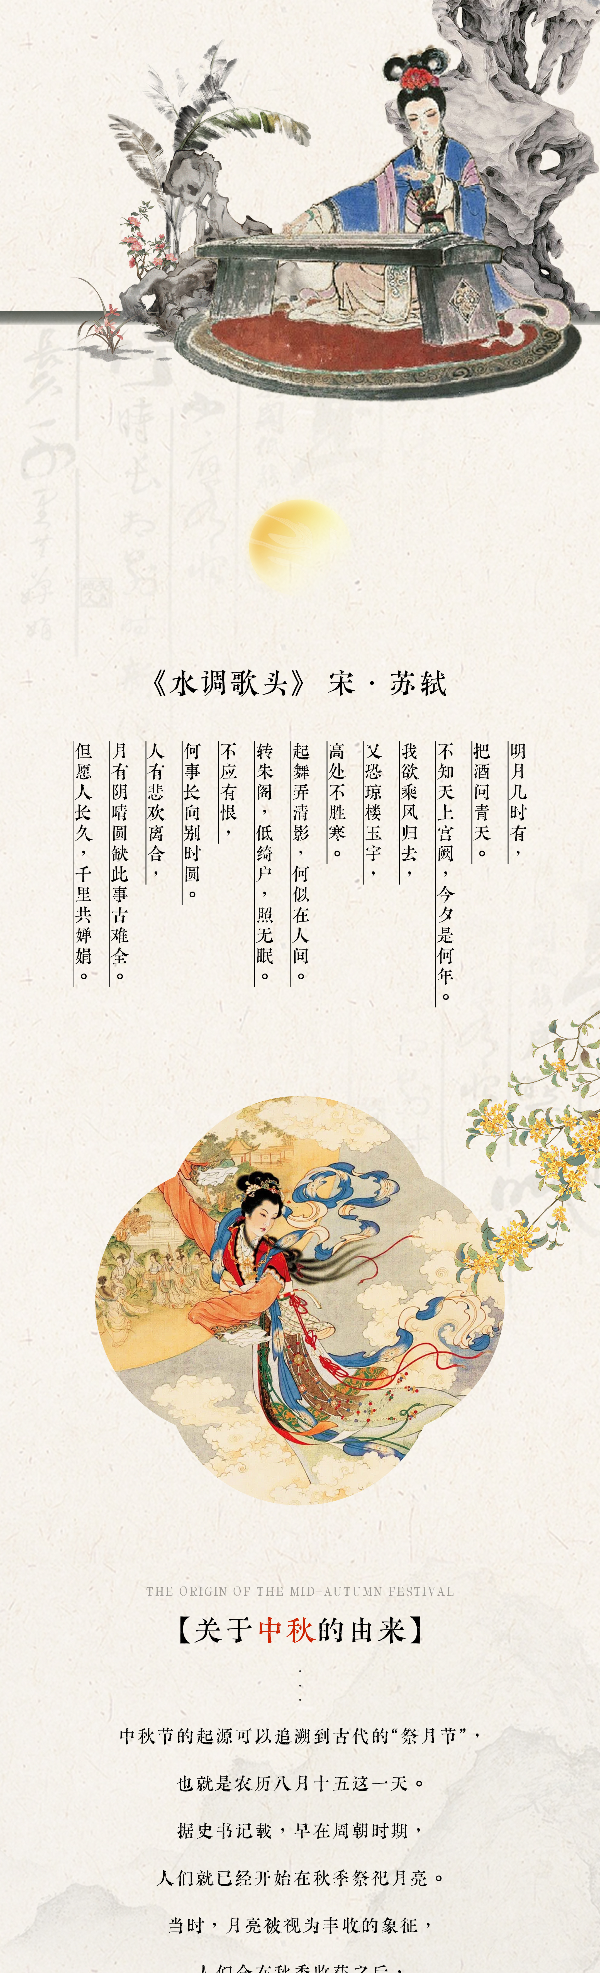 《水调歌头》 宋·苏轼
明月几时有，
把酒问青天。
不知天上宫阙，今夕是何年。
我欲乘风归去，
又恐琼楼玉宇，
高处不胜寒。
起舞弄清影，何似在人间。
转朱阁，低绮户，照无眠。
不应有恨，
何事长向别时圆。
人有悲欢离合，
月有阴晴圆缺此事古难全。
但愿人长久，千里共婵娟。
THE ORIGIN OF THE MID-AUTUMN FESTIVAL
【关于中秋的由来】
中秋节的起源可以追溯到古代的“祭月节”，
也就是农历八月十五这一天。
据史书记载，早在周朝时期，
人们就已经开始在秋季祭祀月亮。
当时，月亮被视为丰收的象征，
人们会在秋季收获之后，